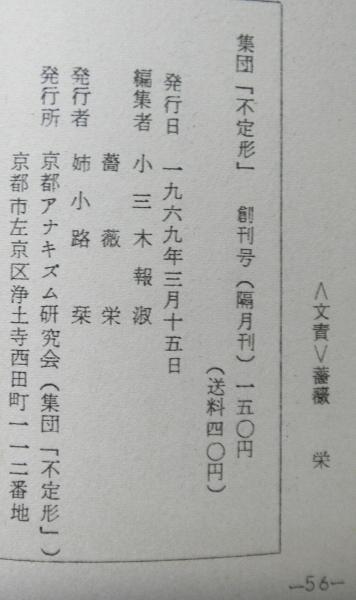 ＜文責＞薔薇　栄
集団「不定形」　創刊号（隔月刊）一五〇円
（送料四〇円）
発行日　一九六九年三月十五日
編集者　小三木報淑
薔薇　栄
発行者　姉小路　栞
発行所　京都アナキズム研究会（集団「不定形」）
京都市左京区浄土寺西田町一一二番地
—56—